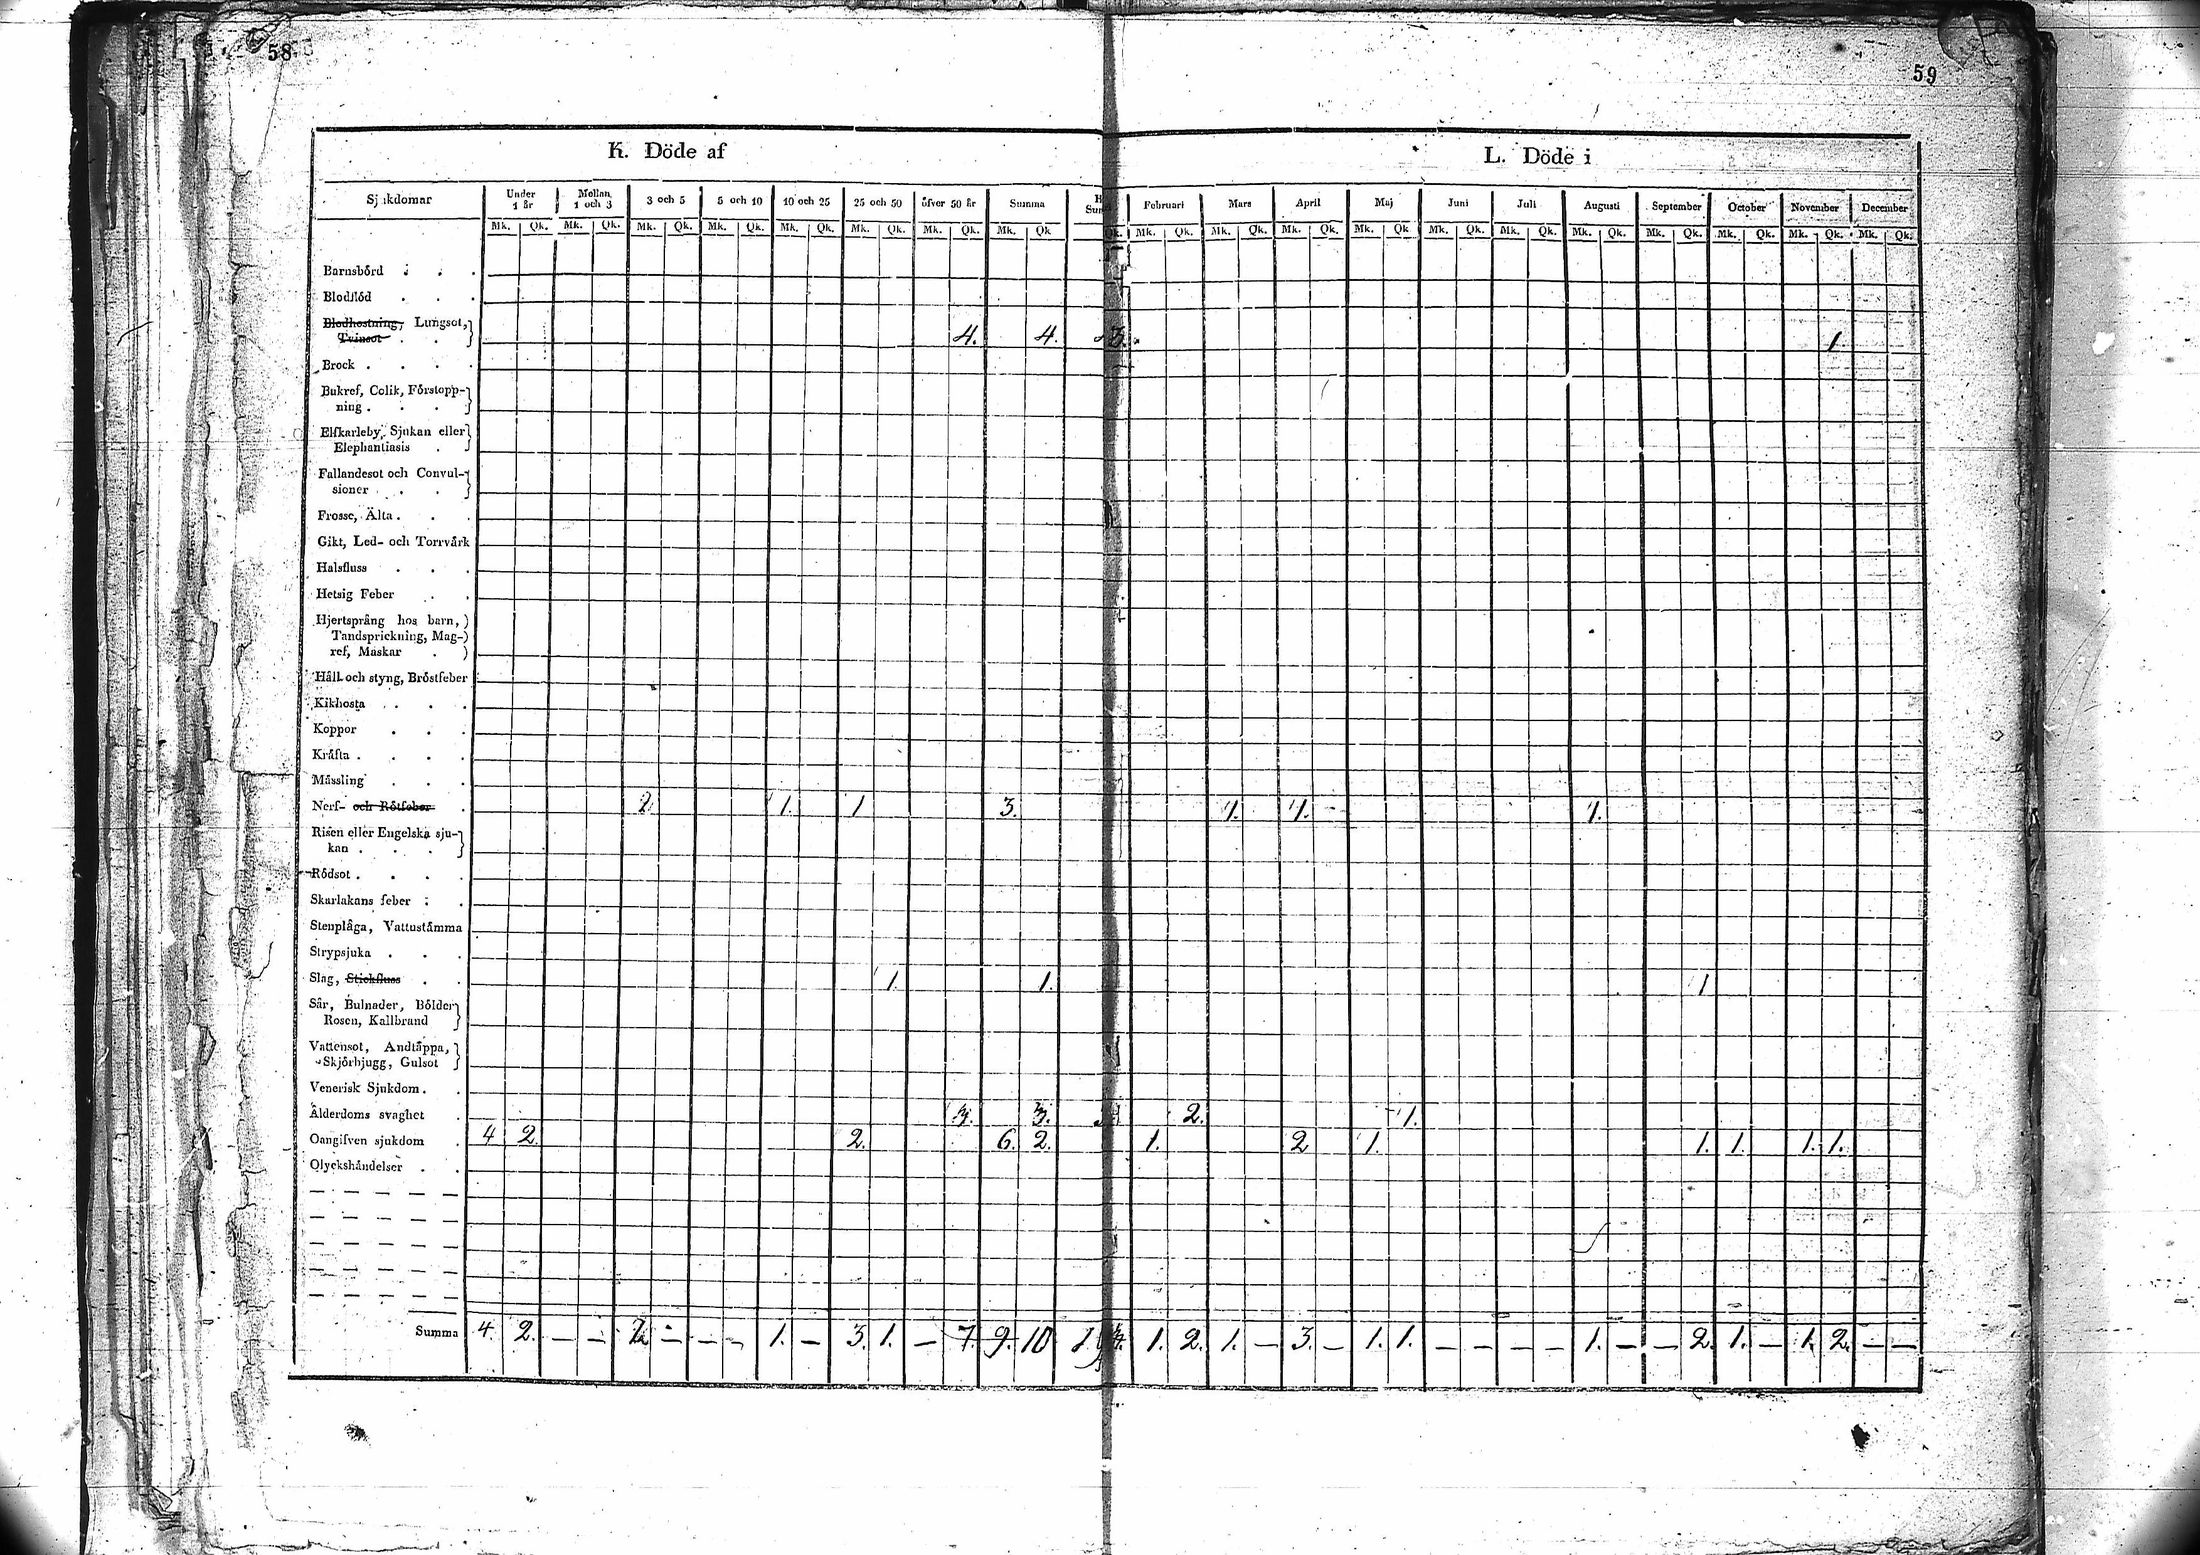 58
59
K. Döde af
L. Döde i
Sjukdomar Under 1 år Mellan 1 och 3 3 och 5 5 och 10 10 och 25 25 och 50 öfver 50 år Summa Februari Mars April Maj Juni Juli Augusti September October November December
Mk. Qk. Mk. Qk. Mk. Qk. Mk. Qk. Mk. Qk. Mk. Qk. Mk. Qk. Mk. Qk. Qk. Mk. Qk. Mk. Qk. Mk. Qk. Mk. Qk. Mk. Qk. Mk. Qk. Mk. Qk. Mk. Qk. Mk. Qk. Mk. Qk. Mk. Qk.
Barnsbörd . . .
Blodflöd . . .
Blodhostning, Lungsot,
Tvinsot . . 4. 4. 3. 1
Brock . . . .
Bukref, Colik, Förstopp-
ning . . .
Elfkarleby Sjukan eller
Elephantiasis .
Fallandesot och Convul-
sioner . . .
Frosse, Älta . . .
Gikt, Led- och Torrvärk
Halsfluss . . .
Hetsig Feber . .
Hjertsprång hos barn,
Tandsprickning, Mag-
ref, Maskar .
Håll och styng, Bröstfeber
Kikhosta . . .
Koppor . . .
Kräfta . . . .
Mässling . . .
Nerf- och Rötfeber . 2 1. 1 3. 1. 1. 1.
Risen eller Engelska sju-
kan . . . .
Rödsot . . . .
Skarlakans feber . .
Stenplåga, Vattustämma
Strypsjuka . . .
Slag, Stickfluss . . 1. 1. 1
Sår, Bulnader, Bölder
Rosen, Kallbrand
Vattensot, Andtäppa,
Skjörbjugg, Gulsot
Venerisk Sjukdom . .
Ålderdoms svaghet . 3. 3. 2. 1.
Oangifven sjukdom . 4 2. 2. 6. 2. 1. 2 1. 1. 1. 1. 1.
Olyckshändelser . .
Summa 4. 2. — — 2 — — — 1. — 3. 1. — 7. 9. 10 1. 2. 1. — 3. — 1. 1. — — — — 1. — — 2. 1. — 1. 2. — —